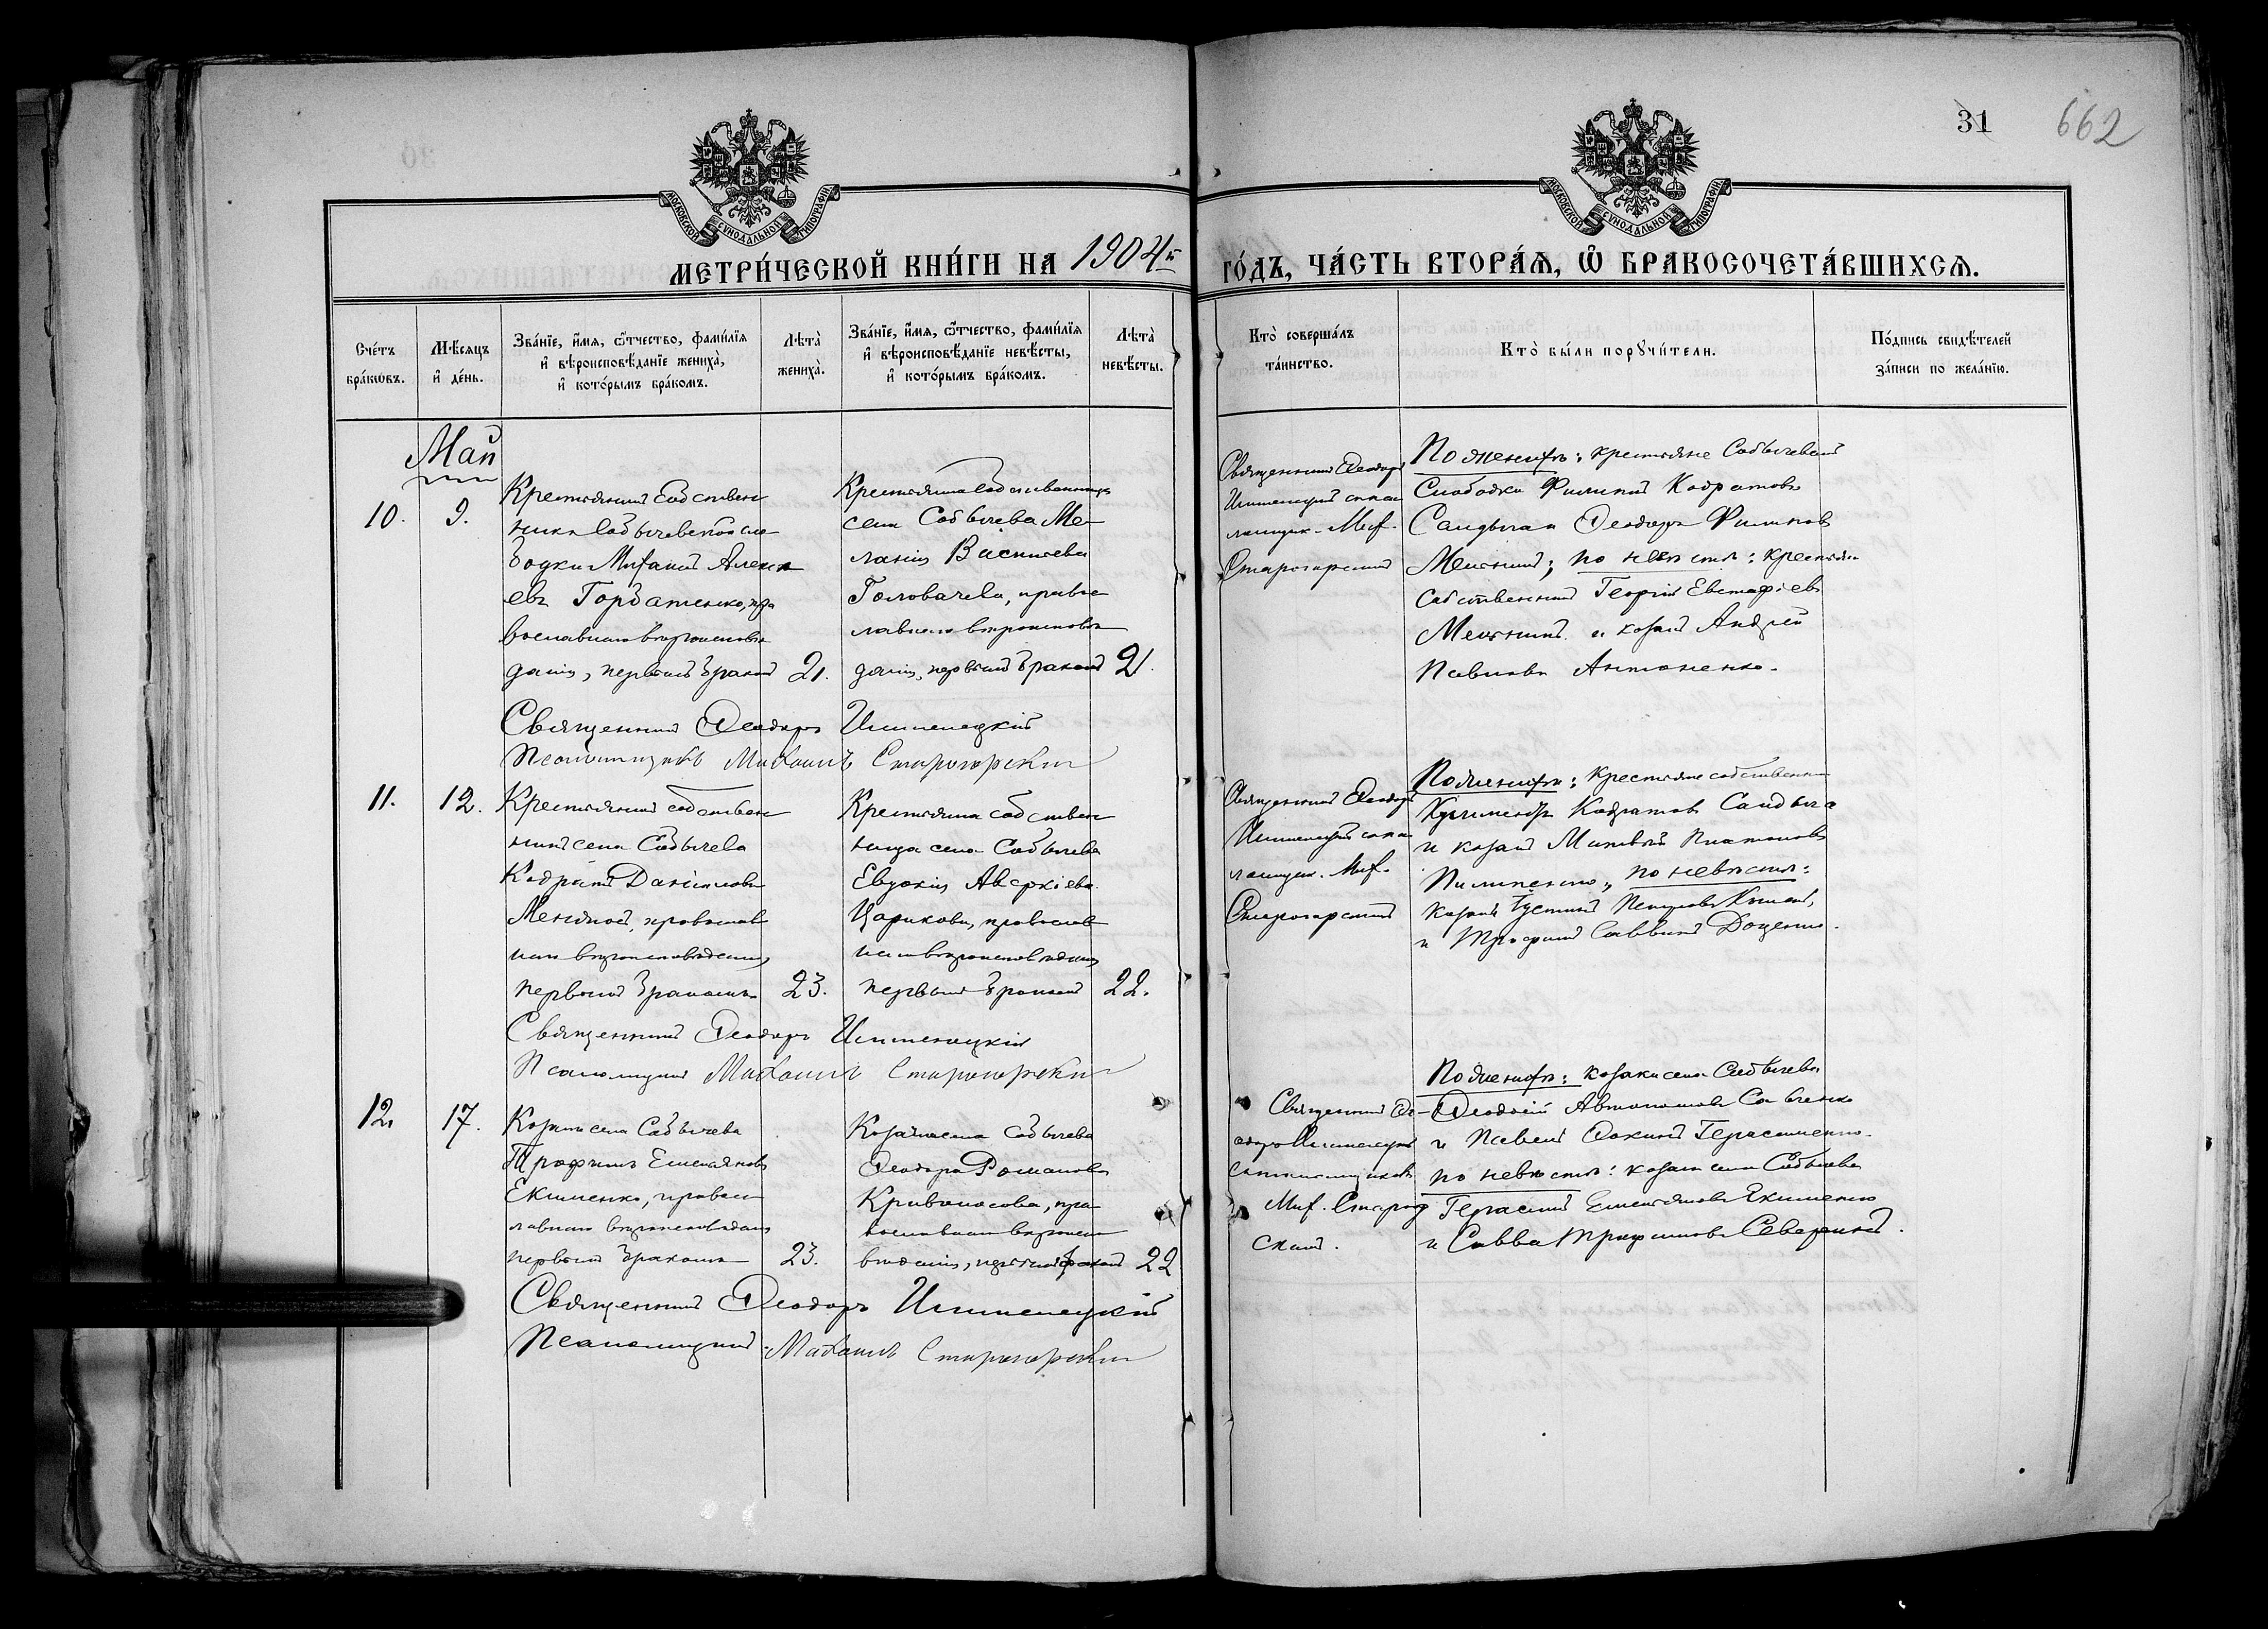 31 662
МОСКОВСКОЙ СѴНОДАЛЬНОЙ ТИПОГРАФІИ
МОСКОВСКОЙ СѴНОДАЛЬНОЙ ТИПОГРАФІИ
МЕТРИ́ЧЕСКОЙ КНИ́ГИ НА 1904й ГО́ДЪ, ЧА́СТЬ ВТОРА́Ѧ, Ѡ҆ БРАКОСОЧЕТА́ВШИХСѦ.
Сче́тъ
бра́кѡвъ.
Мѣ́сяцъ
и҆ де́нь.
Зва́нїе, и҆́мя, ѻ҆́тчество, фами́лїя
и҆ вѣроисповѣ́данїе женихà,
и҆ кото́рымъ бра́комъ.
Лѣтà
женихà.
Зва́нїе, и҆́мя, ѻ҆́тчество, фами́лїя
и҆ вѣроисповѣ́данїе невѣ́сты,
и҆ кото́рымъ бра́комъ.
Лѣтà
невѣ́сты.
Ктò соверша́лъ
та́инство.
Ктò бы́ли порꙋчи́тели.
По́дпись свидѣ́телей
за́писи по жела́нїю.
Май
10.
9.
Крестьянинъ собствен
никъ Собычевской сло
бодки Алексѣ
евъ Горбатенко, пра
вославнаго вѣроисповѣ
данія, первымъ бракомъ
21.
Крестьянка собственница
села Собычева Ме
ланія Васильева
Головачева, правос
лавнаго вѣроисповѣ
данія, первымъ бракомъ
21.
Священникъ Ѳеодоръ
съ пса
ломщик. Мих.
Старогорскимъ
По женихѣ: крестьяне Собычевской
Слободки Филиппъ Кодратовъ
и Ѳеодоръ Филиповъ
по невѣстѣ: крестьян
собственникъ Георгій Евстафіевъ
и козакъ Андрей
Павловъ Антоненко.
Священникъ Ѳеодоръ
Псаломщикъ Михаилъ Старогорскій
11.
12.
Крестьянинъ собствен
никъ села Собычева
Кодратъ Даніиловъ
православ
наго вѣроисповѣданія
первымъ бракомъ
23.
Крестьянка собствен
ница села Собычева
Евдокія Аверкіева
Царикова, православ
наго вѣроисповѣданія
первымъ бракомъ
22.
Священникъ Ѳеодоръ
съ пса
ломщик. Мих.
Старогорскимъ
По женихѣ: крестьяне собственни
Кодратовъ
и козакъ Матвѣй Платоновъ
Пилипенко, по невѣстѣ:
козаки Іустинъ
и Трофимъ Саввинъ Доценко.
Священникъ Ѳеодоръ
Псаломщикъ Михаилъ Старогорскій
12.
17.
Козакъ села Собычева
Трофимъ Емельяновъ
Екименко, правос
лавнаго вѣроисповѣданія
первымъ бракомъ
23.
Козачка села Собычева
Ѳеодора Романова
Кривоносова, пра
вославнаго вѣроиспо
вѣданія, первымъ бракомъ
22
Священникъ Ѳе
одоръ
съ псаломщикомъ
Мих. Старогор
скимъ.
По женихѣ: козаки села Собычева
Ѳеодосій Автономовъ Савченко
и Павелъ Ѳокинъ Герасименко.
по невѣстѣ: козаки села Собычева
Герасимъ Емельяновъ Екименко
и Савва Трофимовъ Северинъ.
Священникъ Ѳеодоръ
Псаломщикъ Михаилъ Старогорскій